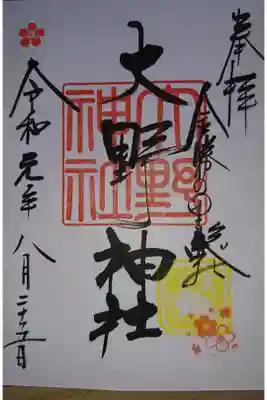 奉拝
金勝の里
大野神社
大野神社
令和元年 八月二十五日